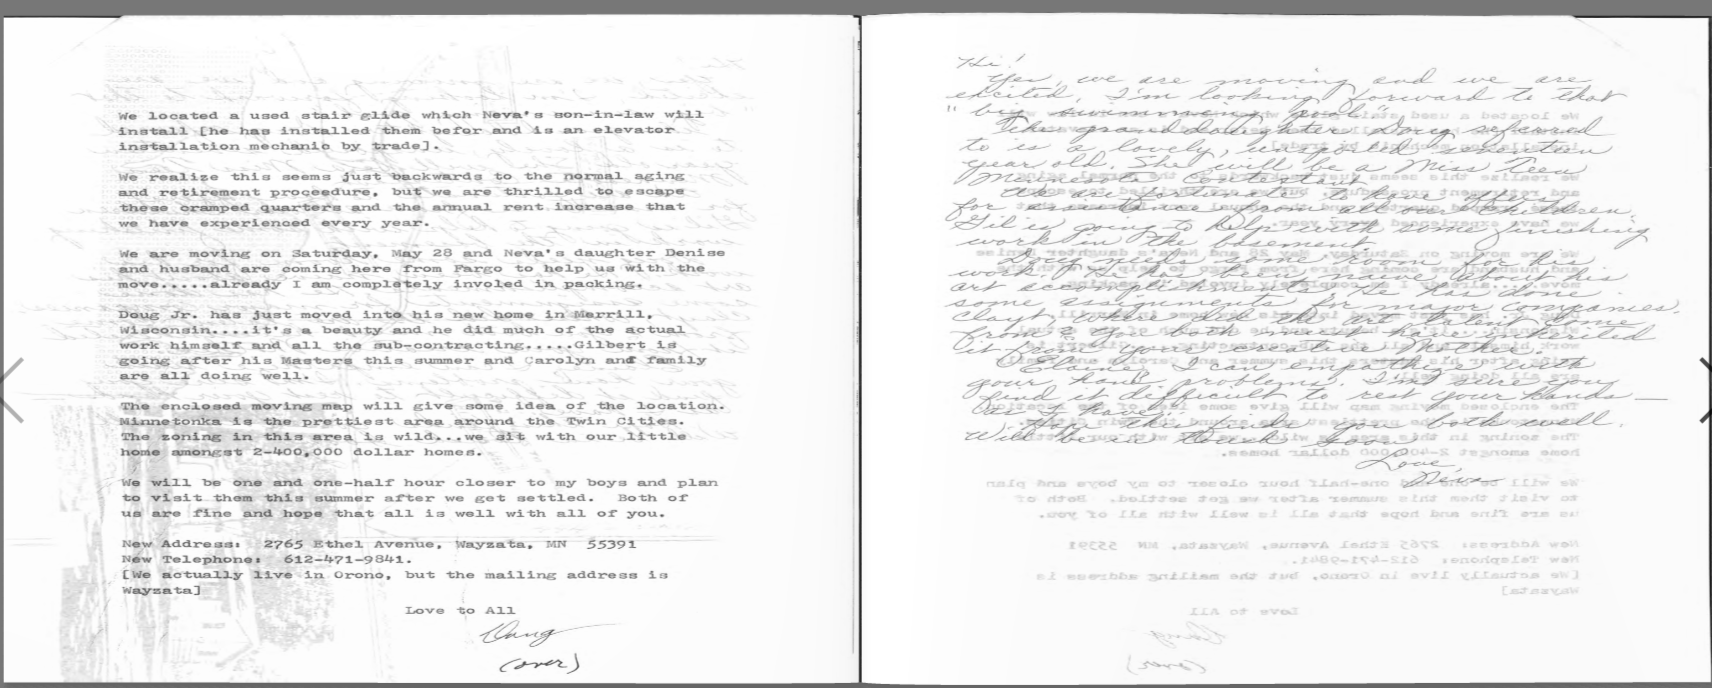 We located a used stair glide which Neva's son-in-law will
install [he has installed them befor and is an elevator
installation mechanic by trade].
We realize this seems just backwards to the normal aging
and retirement proceedure, but we are thrilled to escape
these cramped quarters and the annual rent increase that
we have experienced every year.
We are moving on Saturday, May 28 and Neva's daughter Denise
and husband are coming here from Fargo to help us with the
move.....already I am completely involed in packing.
Doug Jr. has just moved into his new home in Merrill,
Wisconsin....it's a beauty and he did much of the actual
work himself and all the sub-contracting.....Gilbert is
going after his Masters this summer and Carolyn and family
are all doing well.
The enclosed moving map will give some idea of the location.
Minnetonka is the prettiest area around the Twin Cities.
The zoning in this area is wild...we sit with our little
home amongst 2-400,000 dollar homes.
We will be one and one-half hour closer to my boys and plan
to visit them this summer after we get settled. Both of
us are fine and hope that all is well with all of you.
New Address: 2765 Ethel Avenue, Wayzata, MN 55391
New Telephone: 612-471-9841.
[We actually live in Orono, but the mailing address is
Wayzata]
Love to All
Doug
(over)
Hi!
Yes, we are moving and we are
excited. I'm looking forward to that
"big swimming pool"
The granddaughter Doug referred
to is a lovely, seventeen
year old. She will be a Miss Teen
Minnesota Contestant
We are fortunate to have offers
for assistance from all our children.
Gil is going to help with some finishing
work in the basement
work.
art He has done
some assignments for major companies.
Clayt, talent come
from? you both have inherited
it from your creative Mother.
Elaine, I can empathize with
your hand problems. I'm sure you
find it difficult to rest your hands—
as I have!
Hope this finds you both well.
Will be in touch soon.
Love,
Neva